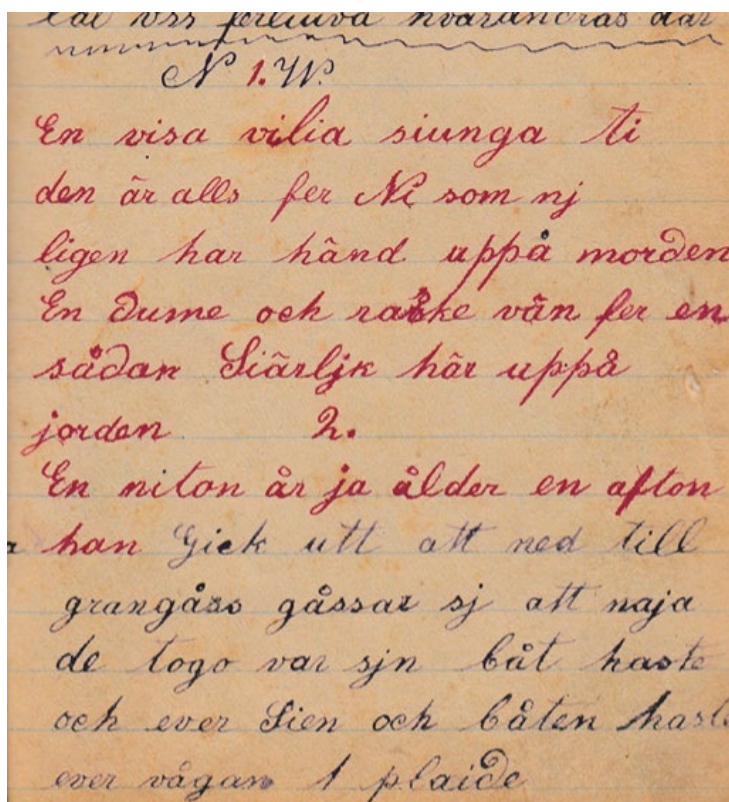 låt oss ferliuva hvarandras där
N 1. W.
En visa vilia siunga ti
den är alls fer Ni som nj
ligen har händ uppå morden
En dume och raske vän fer en
sådan Siärljk här uppå
jorden 2.
En niton år ja ålder en afton
han Giek utt att ned till
grangåss gåssar sj att naja
de togo var sjn båt haste
och ever Sien och båten hast
ever vågan 1 plaide